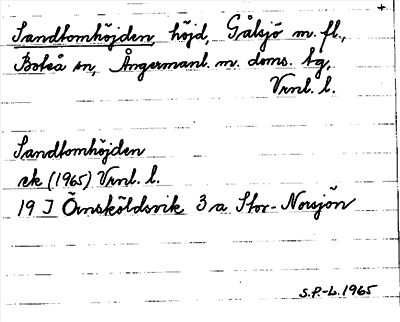 +
Sandtomhöjden, höjd, Gålsjö m. fl.,
Boteå sn, Ångermanl. m. doms. tg,
Vrnl. l.
Sandtomhöjden
ek (1965) Vrnl. l.
19 I Örnsköldsvik 3 a Stor-Norsjön
S.P.-L. 1965